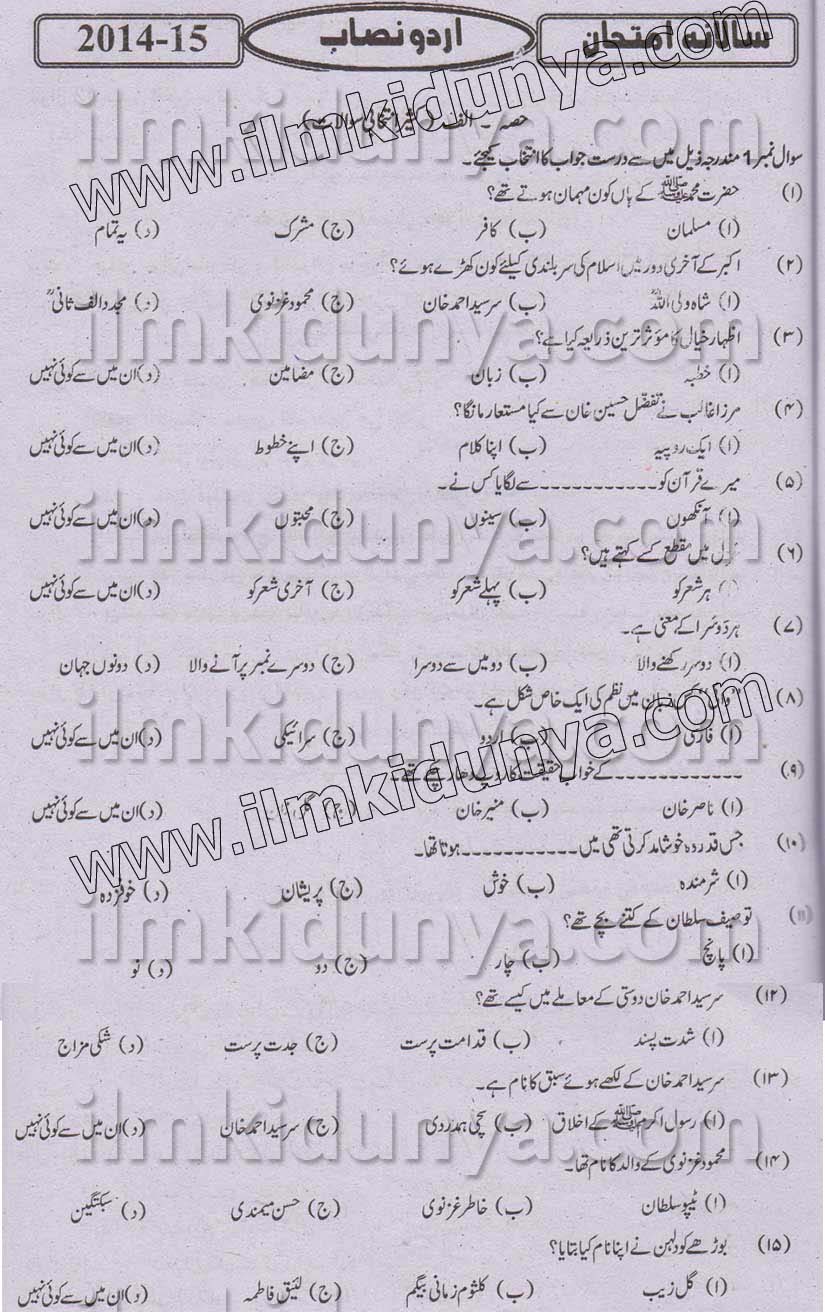 سالانہ امتحان اردو نصاب 2014-15
حصہ - الف (کثیر الانتخابی سوالات)
سوال نمبر 1 مندرجہ ذیل میں سے درست جواب کا انتخاب کیجئے۔
(۱) حضرت محمد ﷺ کے ہاں کون مہمان ہوتے تھے؟
(ا) مسلمان (ب) کافر (ج) مشرک (د) یہ تمام
(۲) اکبر کے آخری دور میں اسلام کی سربلندی کیلئے کون کھڑے ہوئے؟
(ا) شاہ ولی اللہؒ (ب) سرسید احمد خان (ج) محمود غزنوی (د) مجدد الف ثانیؒ
(۳) اظہار خیال کا مؤثر ترین ذریعہ کیا ہے؟
(ا) خطبہ (ب) زبان (ج) مضامین (د) ان میں سے کوئی نہیں
(۴) مرزا غالب نے تفضل حسین خان سے کیا مستعار مانگا؟
(ا) ایک روپیہ (ب) اپنا کلام (ج) اپنے خطوط (د) ان میں سے کوئی نہیں
(۵) میرے قرآن کو ـــــــــ سے لگایا کس نے۔
(ا) آنکھوں (ب) سینوں (ج) محبتوں (د) ان میں سے کوئی نہیں
(۶) میں مقطع کسے کہتے ہیں؟
ہر شعر کو (ب) پہلے شعر کو (ج) آخری شعر کو (د) ان میں سے کوئی نہیں
(۷) ہر دوسرا کے معنی ہے۔
(ا) دوسر رکھنے والا (ب) دو میں سے دوسرا (ج) دوسرے نمبر پر آنے والا (د) دونوں جہان
(۸) "وائی" کس زبان میں نظم کی ایک خاص شکل ہے۔
(ا) فارسی (ب) اردو (ج) سرائیکی (د) ان میں سے کوئی نہیں
(۹) ـــــــــ کے خواب حقیقت کا روپ دھار چکے تھے۔
(ا) ناصر خان (ب) منیر خان (ج) گل (د) ان میں سے کوئی نہیں
(۱۰) جس قدر وہ خوشامد کرتی تھی میں ـــــــــ ہوتا تھا۔
(ا) شرمندہ (ب) خوش (ج) پریشان (د) خوفزدہ
(۱۱) توصیف سلطان کے کتنے بچے تھے؟
(ا) پانچ (ب) چار (ج) دو (د) نو
(۱۲) سرسید احمد خان دوستی کے معاملے میں کیسے تھے؟
(ا) شدت پسند (ب) قدامت پرست (ج) جدت پرست (د) شکی مزاج
(۱۳) سرسید احمد خان کے لکھے ہوئے سبق کا نام ہے۔
(ا) رسول اکرم ﷺ کے اخلاق (ب) سچی ہمدردی (ج) سرسید احمد خان (د) ان میں سے کوئی نہیں
(۱۴) محمود غزنوی کے والد کا نام تھا۔
(ا) ٹیپو سلطان (ب) خاطر غزنوی (ج) حسن میمندی (د) سبکتگین
(۱۵) بوڑھے کو دلہن نے اپنا نام کیا بتایا؟
(ا) گل زیب (ب) کلثوم زمانی بیگم (ج) لئیق فاطمہ (د) ان میں سے کوئی نہیں
www.ilmkidunya.com
ilmkidunya.com
ilmkidunya.com
ilmkidunya.com
ilmkidunya.com
www.ilmkidunya.com
ilmkidunya.com
ilmkidunya.com